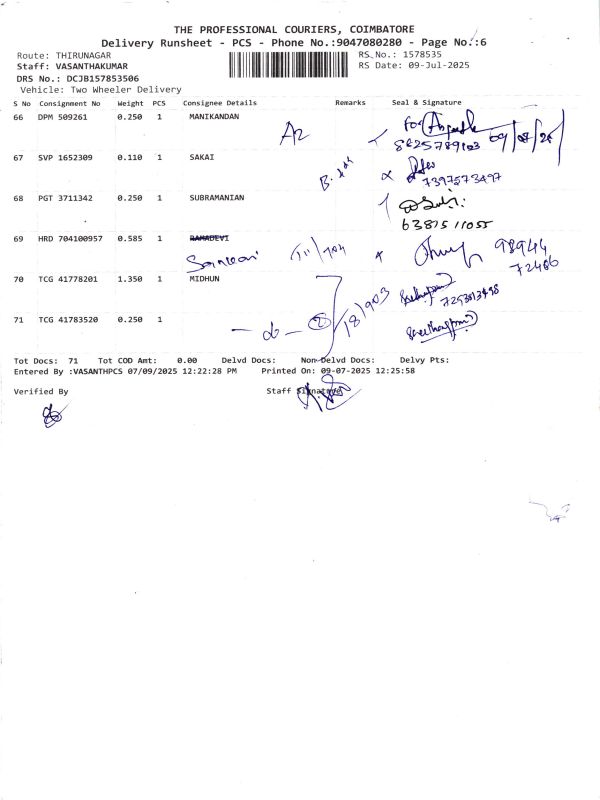 THE PROFESSIONAL COURIERS, COIMBATORE
Delivery Runsheet - PCS - Phone No.:9047080280 - Page No.:6
Route: THIRUNAGAR RS.No.: 1578535
Staff: VASANTHAKUMAR RS Date: 09-Jul-2025
DRS No.: DCJB157853506
Vehicle: Two Wheeler Delivery
S No Consignment No Weight PCS Consignee Details Remarks Seal & Signature
66 DPM 509261 0.250 1 MANIKANDAN
67 SVP 1652309 0.110 1 SAKAI
7397573497
68 PGT 3711342 0.250 1 SUBRAMANIAN
6381511055
69 HRD 704100957 0.585 1 RAMADEVI
98944
72466
70 TCG 41778201 1.350 1 MIDHUN
71 TCG 41783520 0.250 1
Tot Docs: 71 Tot COD Amt: 0.00 Delvd Docs: Non-Delvd Docs: Delvy Pts:
Entered By :VASANTHPCS 07/09/2025 12:22:28 PM Printed On: 09-07-2025 12:25:58
Verified By Staff Signature